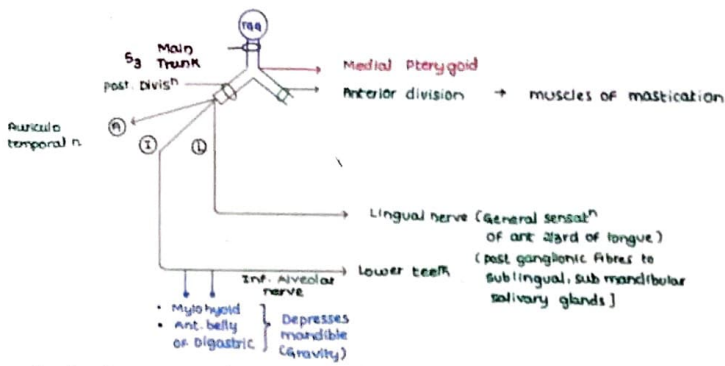 Main
Trunk
S3
Medial Pterygoid
post. Divisⁿ
Anterior division → muscles of mastication
Auriculo
temporal n
A
I
L
Lingual nerve (General sensatⁿ
of ant 2/3rd of tongue)
(post ganglionic fibres to
sublingual, sub mandibular
salivary glands]
Lower teeth
Inf. Alveolar
nerve
• Mylohyoid
• Ant. belly
of Digastric
Depresses
mandible
(Gravity)